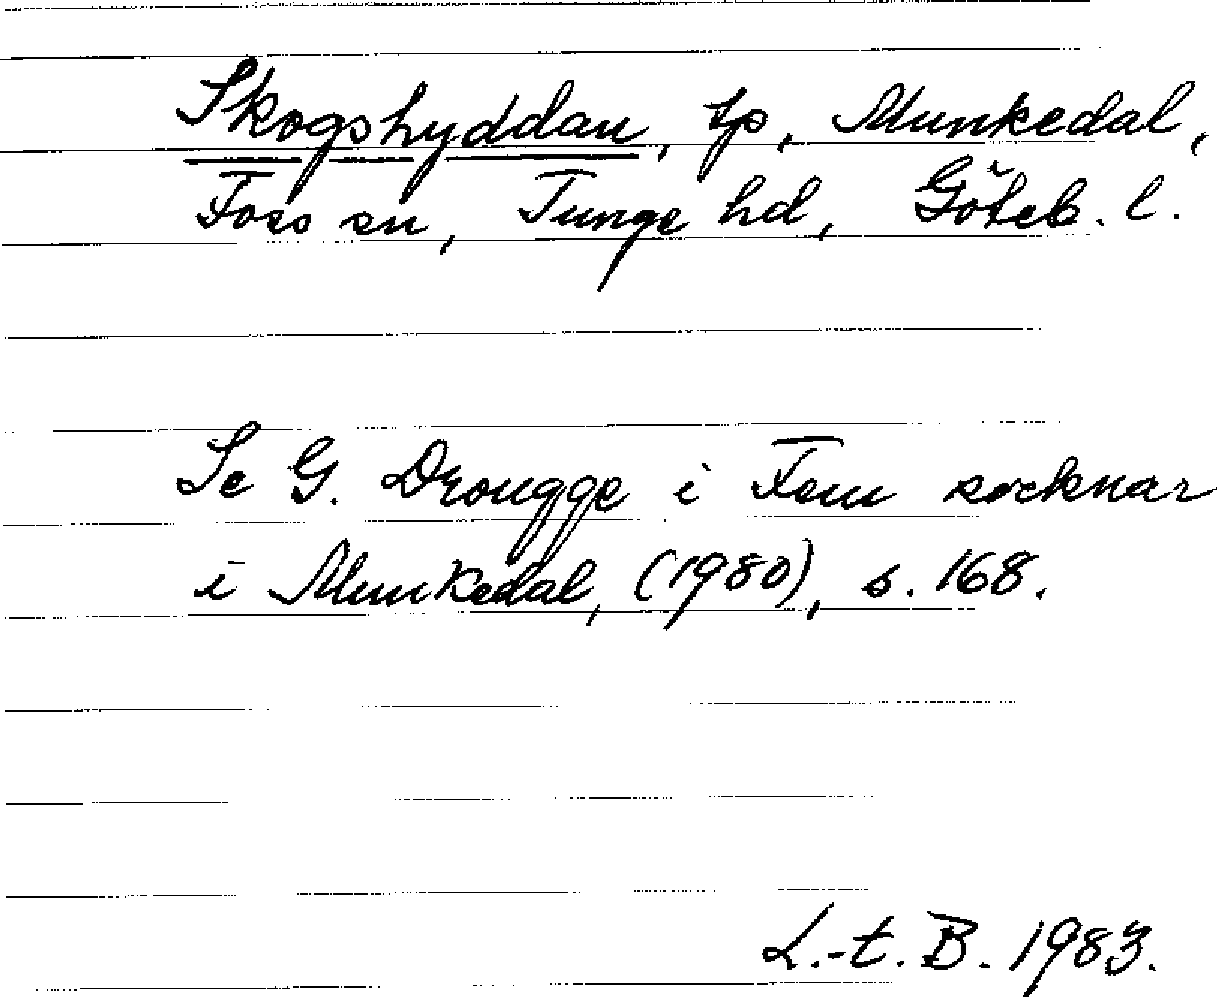 Skogshyddan, tp, Munkedal,
Foss sn, Tunge hd, Göteb. l.
Se G. Drougge i Fem socknar
i Munkedal, (1980), s. 168.
L.-t. B. 1983.